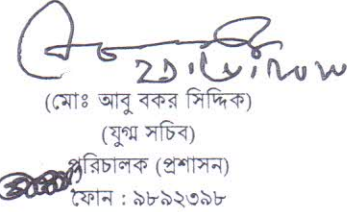 (মোঃ আবু বকর সিদ্দিক)
(যুগ্ম সচিব)
পরিচালক (প্রশাসন)
ফোন : ৯৮৯২৩৯৮